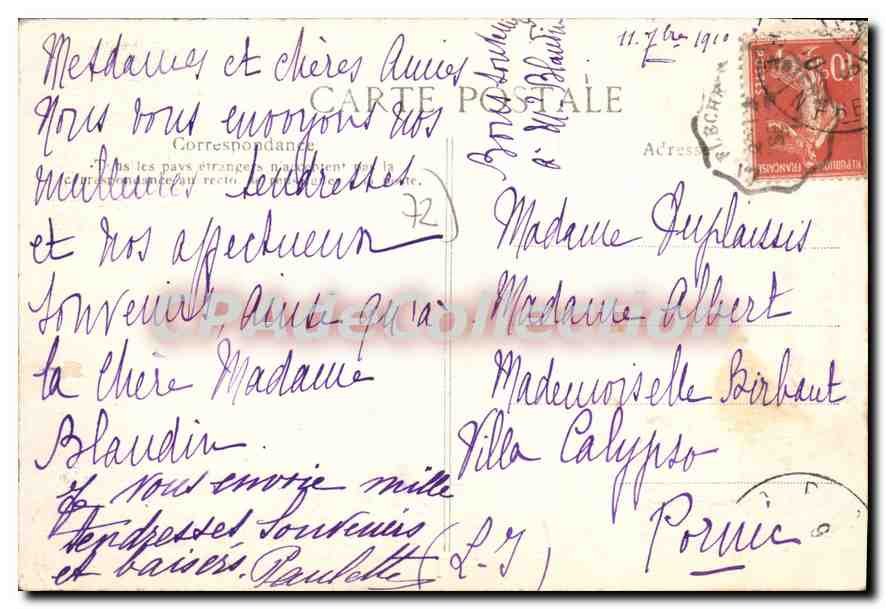 Mesdames et chères Amies
Nous vous envoyons nos
meilleures tendresses
et nos affectueux
souvenirs, ainsi qu'à
la chère Madame
Blaudin
Je vous envoie mille
tendresses souvenirs
et baisers. Paulette
CARTE POSTALE
Correspondance
Tous les pays étrangers n'acceptent pas la
correspondance au recto
72
Bons souvenirs
à Mme Blaudin
11. 7bre 1910
Adresse
10
REPUBLIQUE FRANÇAISE
Madame Duplaissis
Madame Albert
Mademoiselle Birbaut
Villa Calypso
Pornic
(L-I)
CPArdeCollection